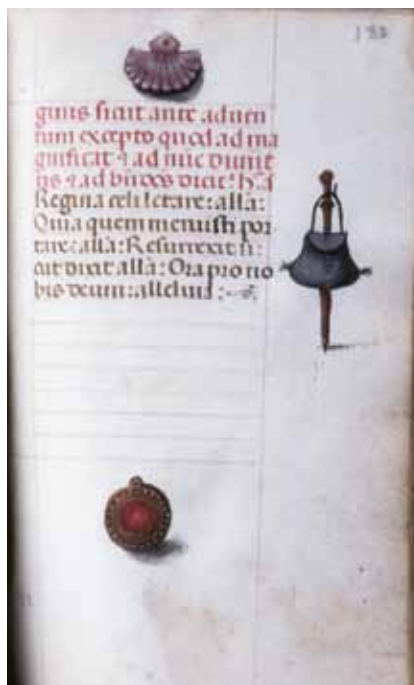 133
ginis sicut ante aduen
tum excepto quod ad ma
gnificat ⁊ ad nunc dimit
tis ⁊ ad bn̄dictus dicit̄: hec an̄
Regina celi letare: alla:
Quia quem meruisti por
tare: alla: Resurrexit si
cut dixit alla: Ora pro no
bis deum: alleluia: